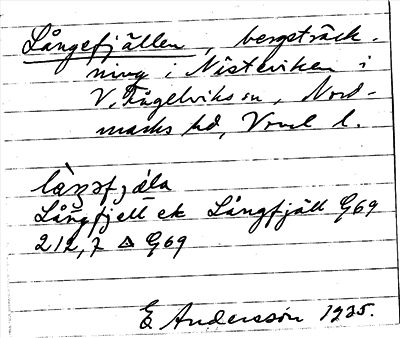 Långefjällen, bergsträck-
ning i Nisteviken i
V. Fågelviks sn, Nord-
marks hd, Vrml l.
làŋəfjæla
Långfjell ek Långfjäll G69
212,7 △ G69
E Andersson 1935.